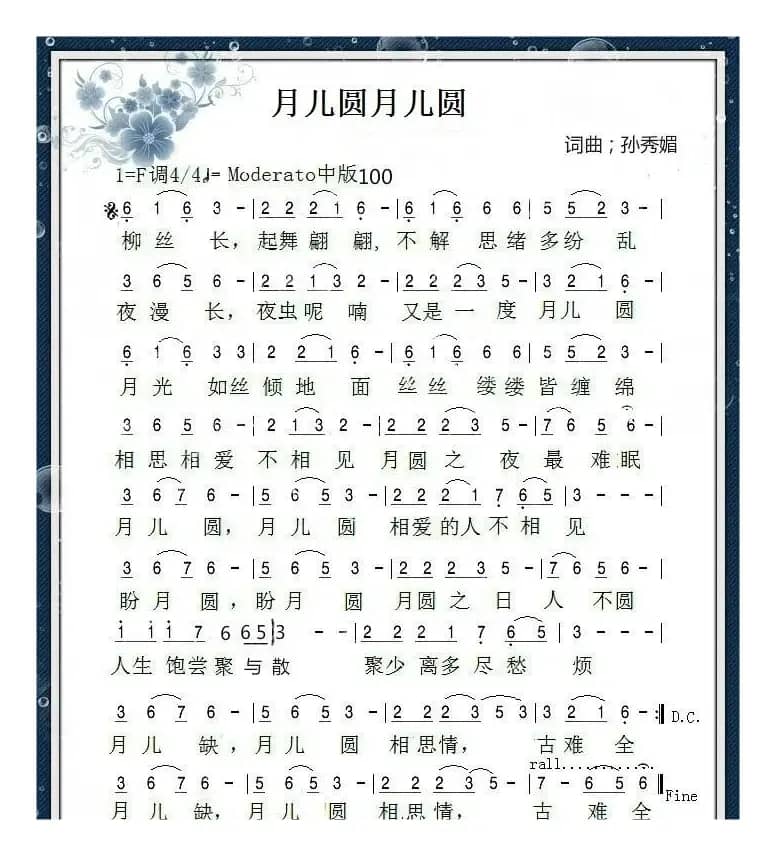 月儿圆月儿圆
词曲；孙秀媚
1=F调4/4♩= Moderato中版100
6 1 6 3 - | 2 2 2 1 6 - | 6 1 6 6 6 | 5 5 2 3 - |
柳丝 长，起舞翩 翩, 不解 思绪多纷 乱
3 6 5 6 - | 2 2 1 3 2 - | 2 2 2 3 5 - | 3 2 1 6 - |
夜漫 长，夜虫呢 喃 又是一 度 月儿 圆
6 1 6 3 3 | 2 2 1 6 - | 6 1 6 6 6 | 5 5 2 3 - |
月光 如丝倾地 面 丝丝 缕缕皆缠 绵
3 6 5 6 - | 2 1 3 2 - | 2 2 2 3 5 - | 7 6 5 6 - |
相思相爱 不相见 月圆之 夜 最 难眠
3 6 7 6 - | 5 6 5 3 - | 2 2 2 1 7 6 5 | 3 - - - |
月儿 圆，月儿 圆 相爱的人不相 见
3 6 7 6 - | 5 6 5 3 - | 2 2 2 3 5 - | 7 6 5 6 - |
盼月 圆，盼月 圆 月圆之 日 人 不圆
1 1 1 7 6 6 5 | 3 - - | 2 2 2 1 7 6 5 | 3 - - - |
人生 饱尝聚与散 聚少离多尽愁 烦
3 6 7 6 - | 5 6 5 3 - | 2 2 2 3 5 3 | 3 2 1 6 - :‖ D.C.
月儿 缺，月儿 圆 相思情， 古难 全
rall............
3 6 7 6 - | 5 6 5 3 - | 2 2 2 3 5 - | 7 - 6 5 6 ‖ Fine
月儿 缺，月儿 圆 相思情， 古 难 全